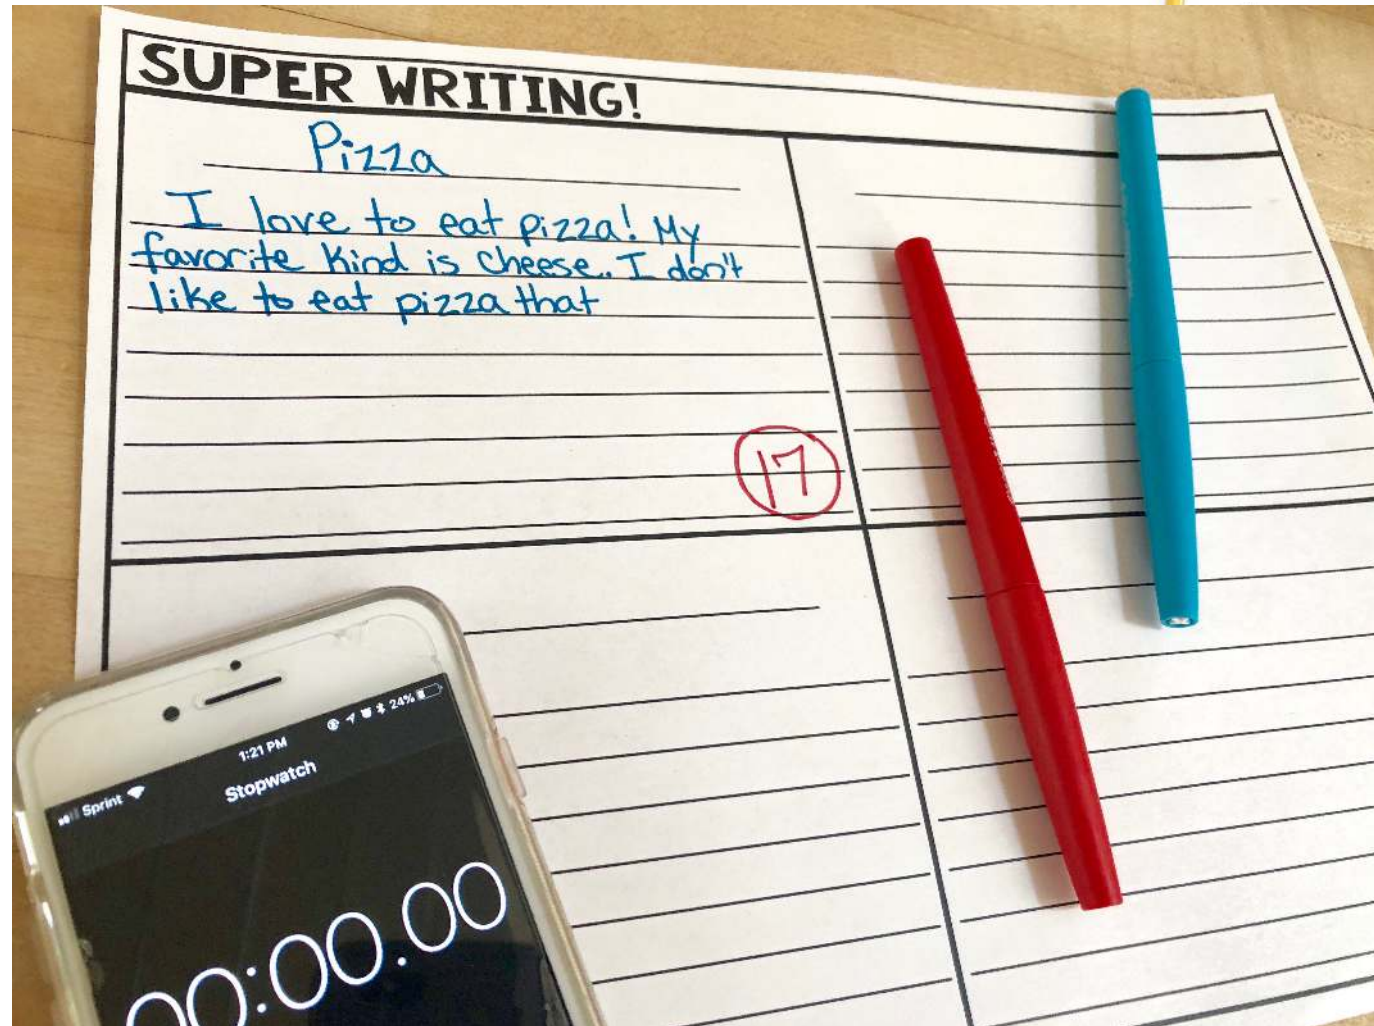 SUPER WRITING!
Pizza
I love to eat pizza! My
favorite kind is cheese. I don't
like to eat pizza that
17
1:21 PM
24%
Sprint
Stopwatch
00:00.00